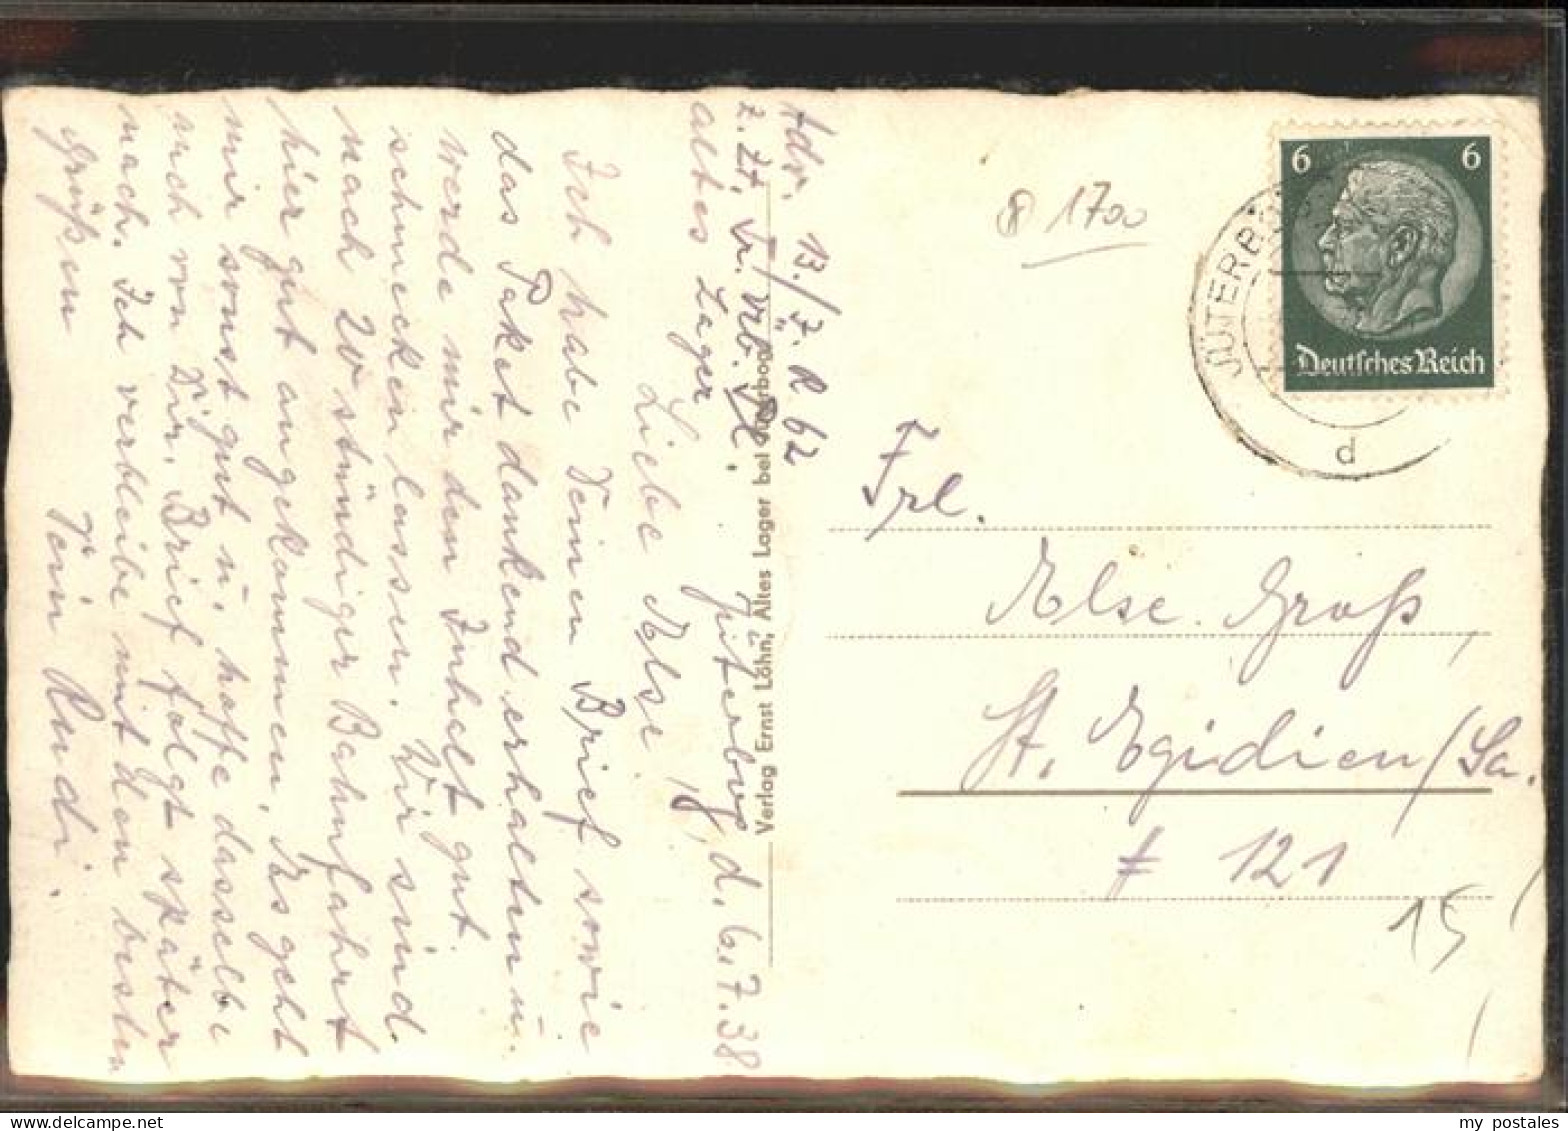 Adr. 13./J.R 62
z. Zt. Tr. Üb. Pl.
altes Lager
Jüterbog, d. 6.7.38
Liebe Else!
Ich habe Deinen Brief sowie
das Paket dankend erhalten u.
werde mir den Inhalt gut
schmecken lassen. Wir sind
nach 20 stündiger Bahnfahrt
hier gut angekommen, Es geht
mir sonst gut u. hoffe dasselbe
auch von Dir. Brief folgt später
nach. Ich verbleibe mit den besten
Grüßen
Dein Rudi.
Verlag Ernst Löhn, Altes Lager bei Jüterbog
8 17a
6 6
Deutsches Reich
JÜTERBOG
d
Frl.
Else Groß,
St. Egidien/Sa.
# 121
15
my postales